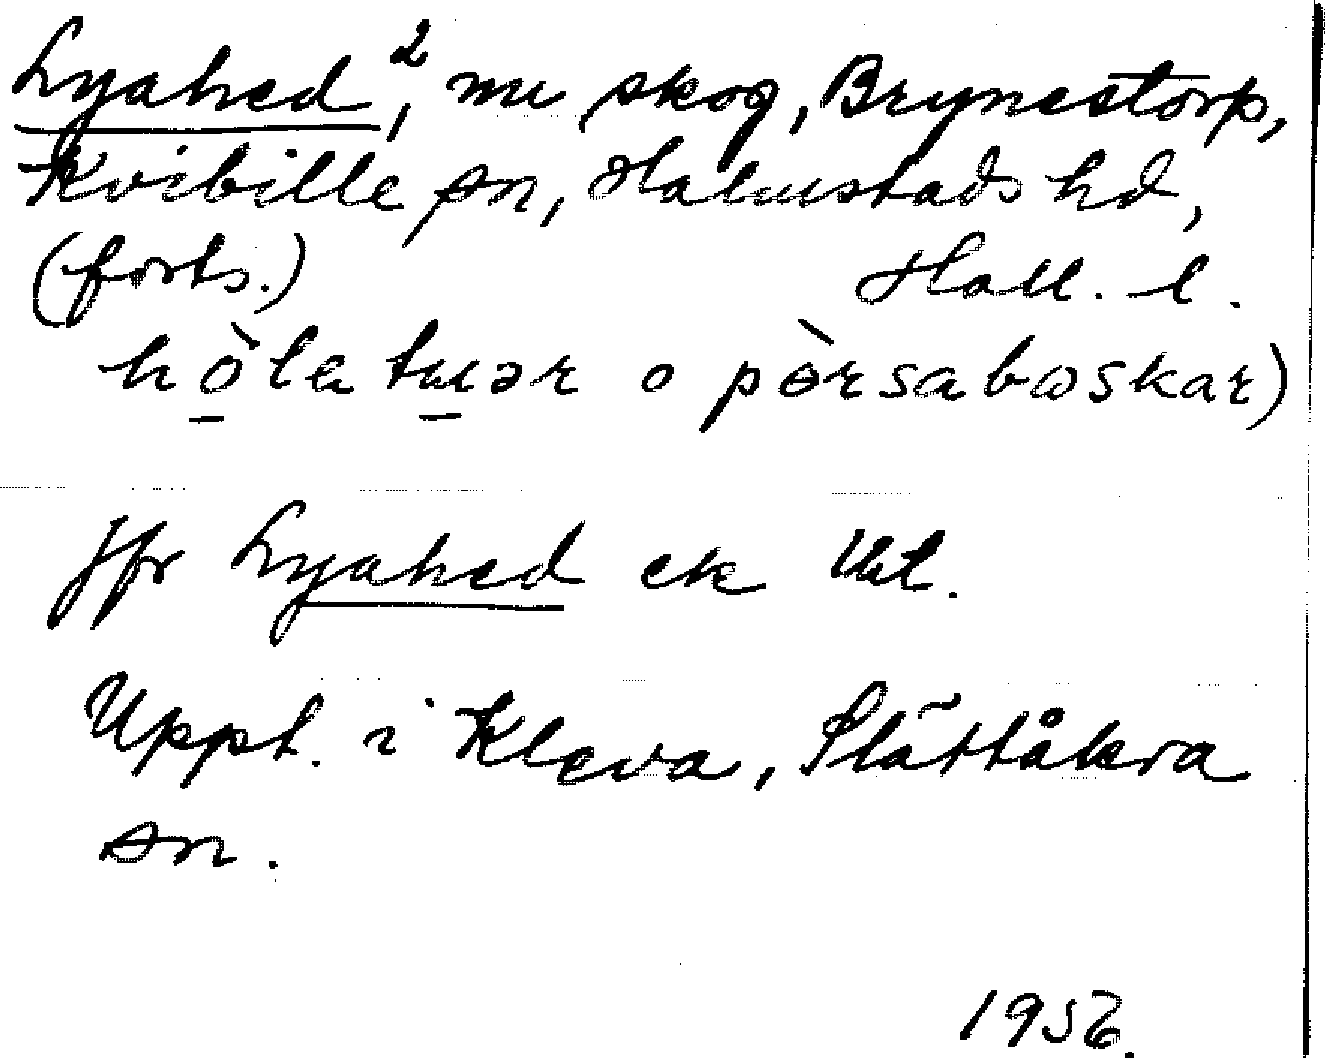 Lyahed², nu skog, Brynestorp,
Kvibille sn, Halmstads hd,
(forts.) Hall. l.
hòla tuər o pòrsabɷskar)
Jfr Lyahed ek kt.
Uppt. i Kleva, Slättåkra
sn.
1956.